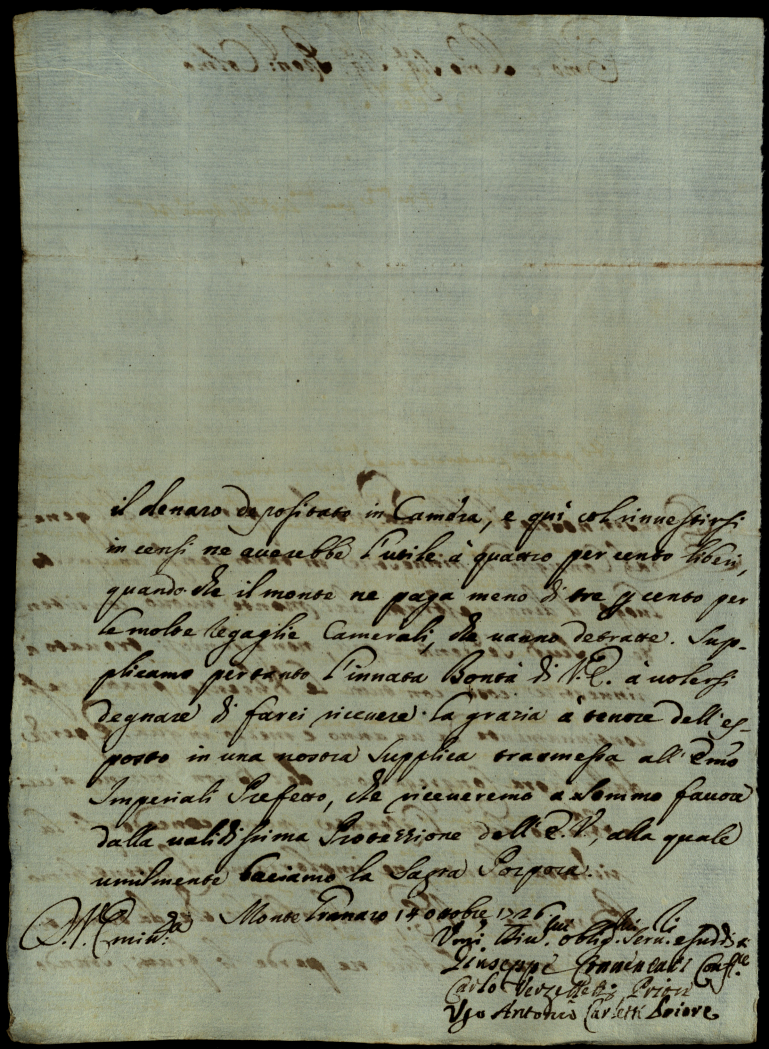 il denaro depositato in Camera, e quì col rinvestirsi
in censi ne averebbe l'utile à quattro per cento liberi,
quando che il monte ne paga meno di tre p cento per
le molte regaglie Camerali, che vanno detratte. Sup-
plicamo pertanto l'innata Bontà di V.E. à volersi
degnare di farci ricevere la grazia à tenore dell'es-
posto in una nostra supplica trasmessa all'Emo
Imperiali Prefetto, che riceveremo a sommo favore
dalla validissima Protezzione dell'E.V., alla quale
umilmente baciamo la Sagra Porpora.
Monte Granaro 14 ottobre 1726
Vmi, Obligmi Servi
Giuseppe
Carlo Priore
Vgo Antonio Carletti Priore